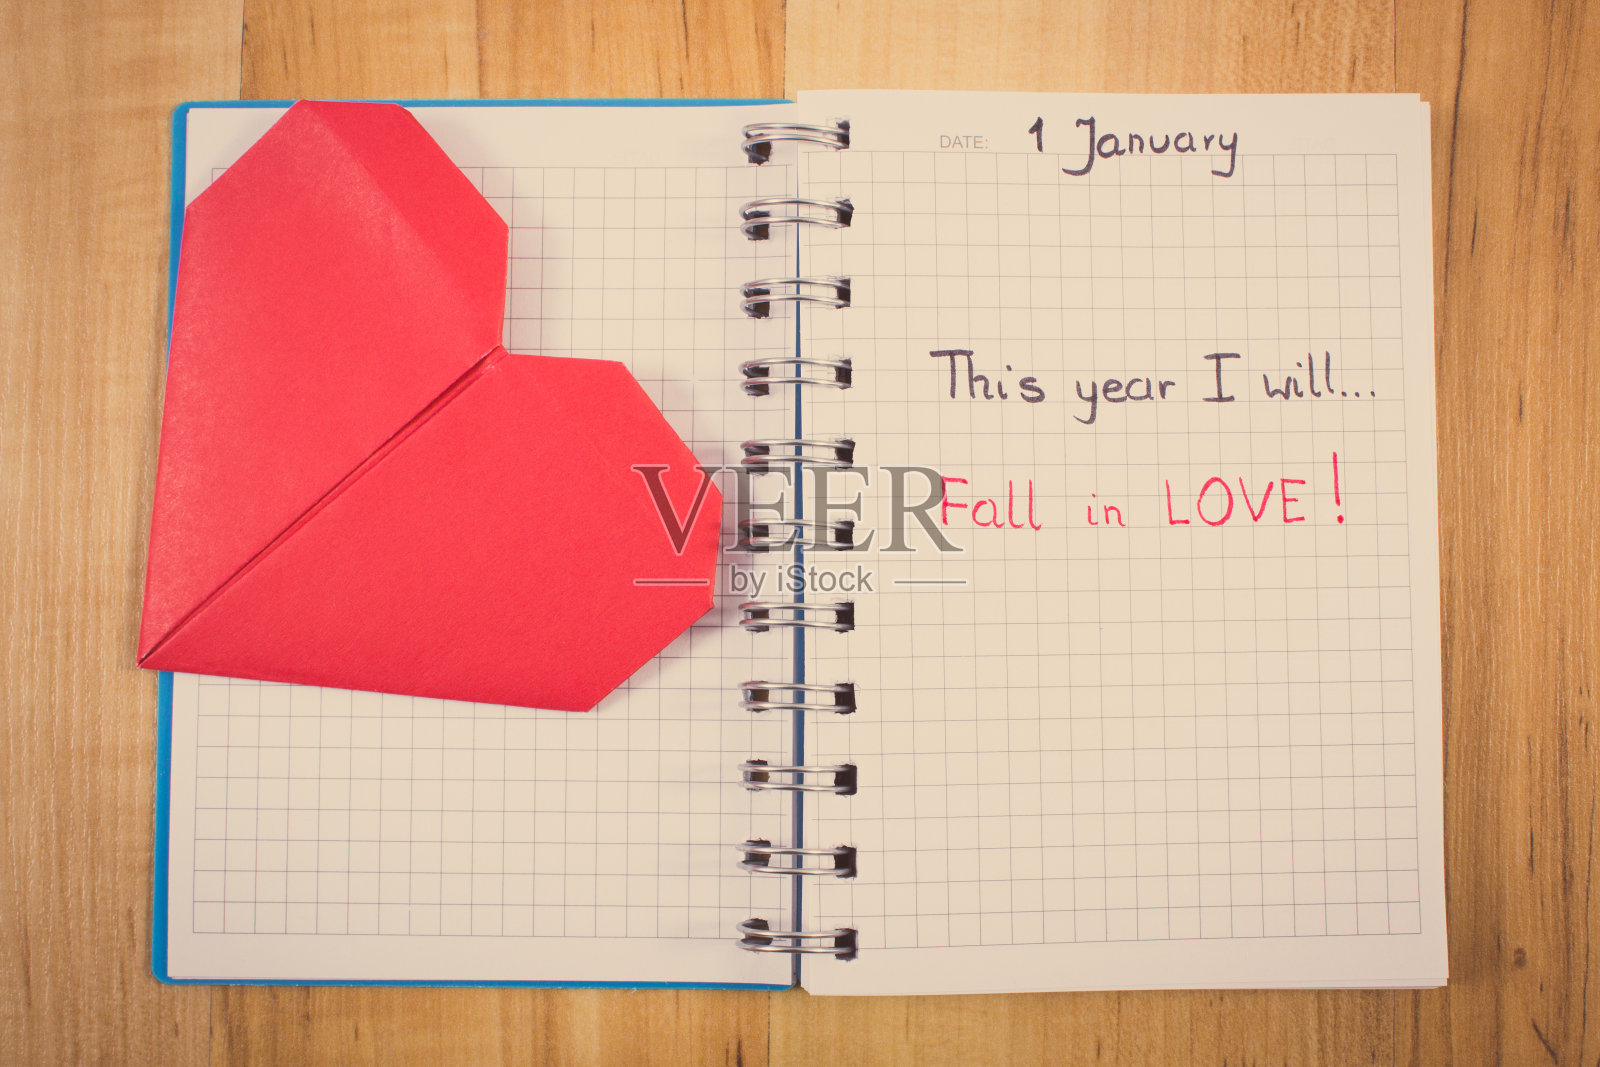 DATE: 1 January
This year I will...
Fall in LOVE!
VEER
by iStock